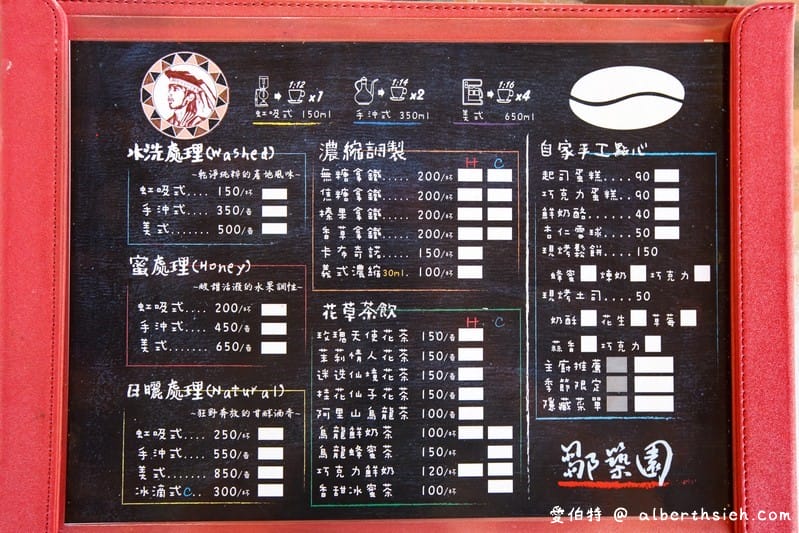 1:12
x1
虹吸式 150ml
1:14
x2
手沖式 350ml
1:16
x4
美式 650ml
水洗處理(Washed)
~乾淨純粹的產地風味~
虹吸式.... 150/杯
手沖式.... 350/壺
美式....... 500/壺
蜜處理(Honey)
~酸甜活潑的水果調性~
虹吸式.... 200/杯
手沖式.... 450/壺
美式....... 650/壺
日曬處理(Natural)
~狂野奔放的甘醇酒香~
虹吸式.... 250/杯
手沖式.... 550/壺
美式....... 850/壺
冰滴式C.. 300/杯
濃縮調製
H C
無糖拿鐵..... 200/杯
焦糖拿鐵..... 200/杯
榛果拿鐵..... 200/杯
香草拿鐵..... 200/杯
卡布奇諾..... 150/杯
義式濃縮30ml. 100/杯
花草茶飲
H C
玫瑰天使花茶 150/壺
茉莉情人花茶 150/壺
迷迭仙境花茶 150/壺
桂花仙子花茶 150/壺
阿里山烏龍茶 100/壺
烏龍鮮奶茶 100/杯
烏龍蜂蜜茶 150/杯
巧克力鮮奶 120/杯
香甜冰蜜茶 100/杯
自家手工點心
起司蛋糕.... 90
巧克力蛋糕.. 90
鮮奶酪....... 40
杏仁雪球.... 50
現烤鬆餅.... 150
蜂蜜 煉奶 巧克力
現烤土司.... 50
奶酥 花生 草莓
蒜香 巧克力
主廚推薦
季節限定
隱藏菜單
鄒築園
愛伯特 @ alberthsieh.com